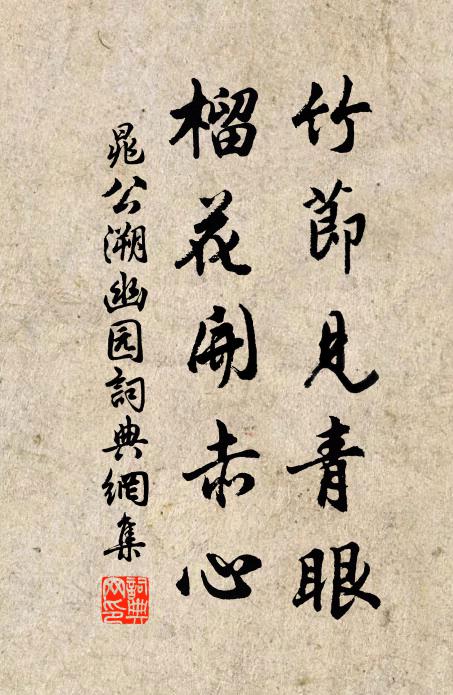 竹節見青眼
榴花開赤心
晁公溯幽园詞典網集
詞典网印